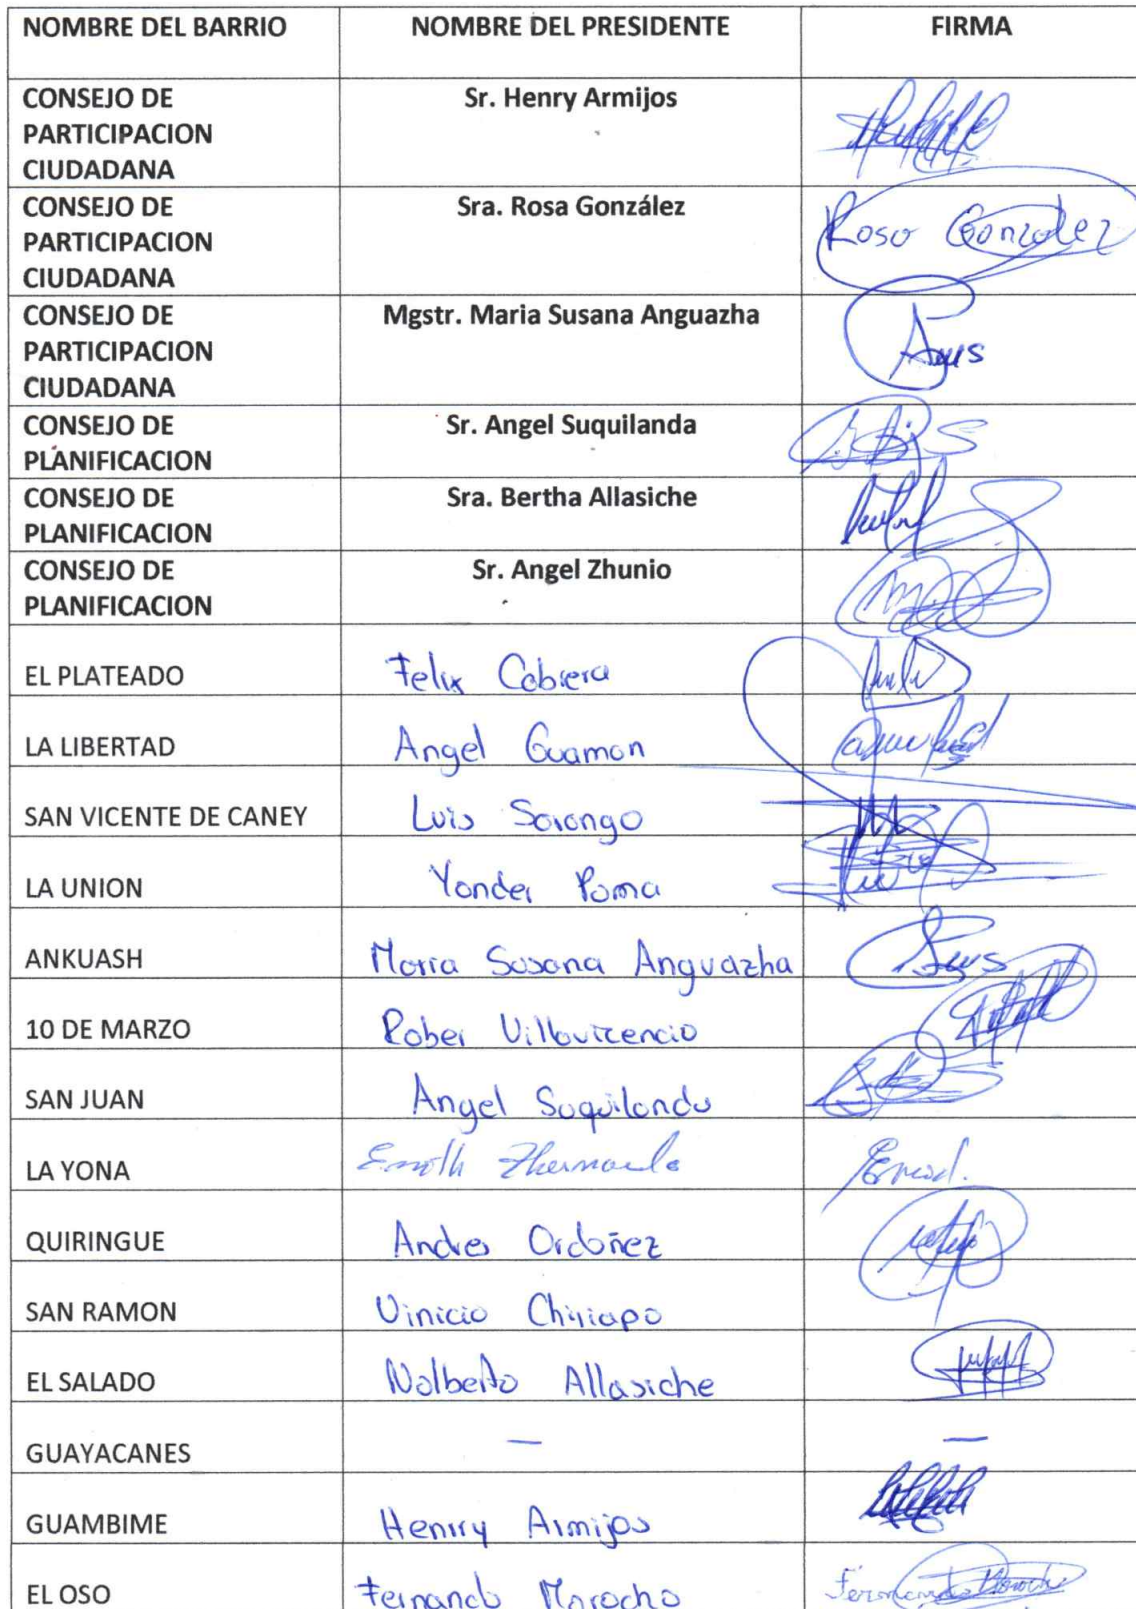 NOMBRE DEL BARRIO NOMBRE DEL PRESIDENTE FIRMA
CONSEJO DE PARTICIPACION CIUDADANA Sr. Henry Armijos
CONSEJO DE PARTICIPACION CIUDADANA Sra. Rosa González Rosa Gonzalez
CONSEJO DE PARTICIPACION CIUDADANA Mgstr. Maria Susana Anguazha
CONSEJO DE PLANIFICACION Sr. Angel Suquilanda
CONSEJO DE PLANIFICACION Sra. Bertha Allasiche
CONSEJO DE PLANIFICACION Sr. Angel Zhunio
EL PLATEADO Felix Cabrera
LA LIBERTAD Angel Guaman
SAN VICENTE DE CANEY Luis Sarango
LA UNION Yonder Poma
ANKUASH Maria Susana Anguazha
10 DE MARZO Rober Villavicencio
SAN JUAN Angel Suquilanda
LA YONA
QUIRINGUE Andres Ordoñez
SAN RAMON Vinicio Chiriapo
EL SALADO Nolberto Allasiche
GUAYACANES — —
GUAMBIME Henrry Armijos
EL OSO Fernando Morocho Fernando Morocho